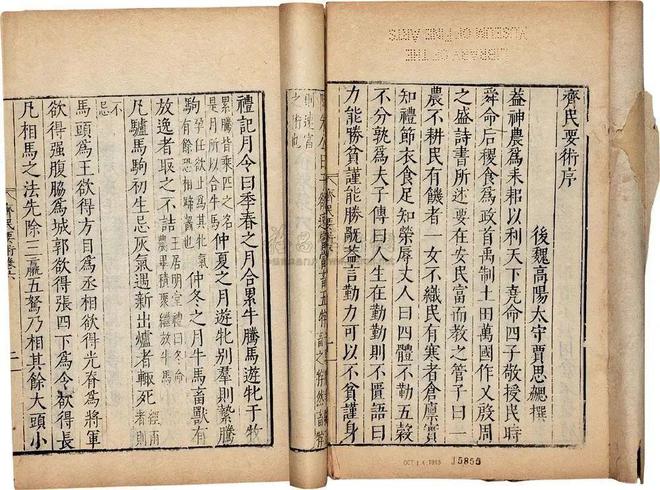 齊民要術序
後魏高陽太守賈思勰撰
益神農爲耒耜以利天下堯命四子敬授民時
舜命后稷食爲政首禹制土田萬國作乂殷周
之盛詩書所述要在安民富而教之管子曰一
農不耕民有饑者一女不織民有寒者倉廩實
知禮節衣食足知榮辱丈人曰四體不勤五穀
不分孰爲夫子傳曰人生在勤勤則不匱語曰
力能勝貧謹能勝禍益言勤力可以不貧謹身
LIBRARY OF THE
MUSEUM OF FINE ARTS
OCT 14 1915
15855
則速富
之術也
禮記月令曰季春之月合累牛騰馬遊牝于牧
累騰皆乘匹之名是月所以合牛馬仲夏之月遊牝別群則縶騰
駒孕任欲止爲其牝氣有餘恐相蹄齧也仲冬之月牛馬畜獸有
放逸者取之不詰王居明堂禮曰冬命農畢積聚繼放牛馬
凡驢馬駒初生忌灰氣遇新出爐者輒死經雨者則
不忌
馬頭爲王欲得方目爲丞相欲得光脊爲將軍
欲得强腹脇爲城郭欲得張四下爲令欲得長
凡相馬之法先除三羸五駑乃相其餘大頭小